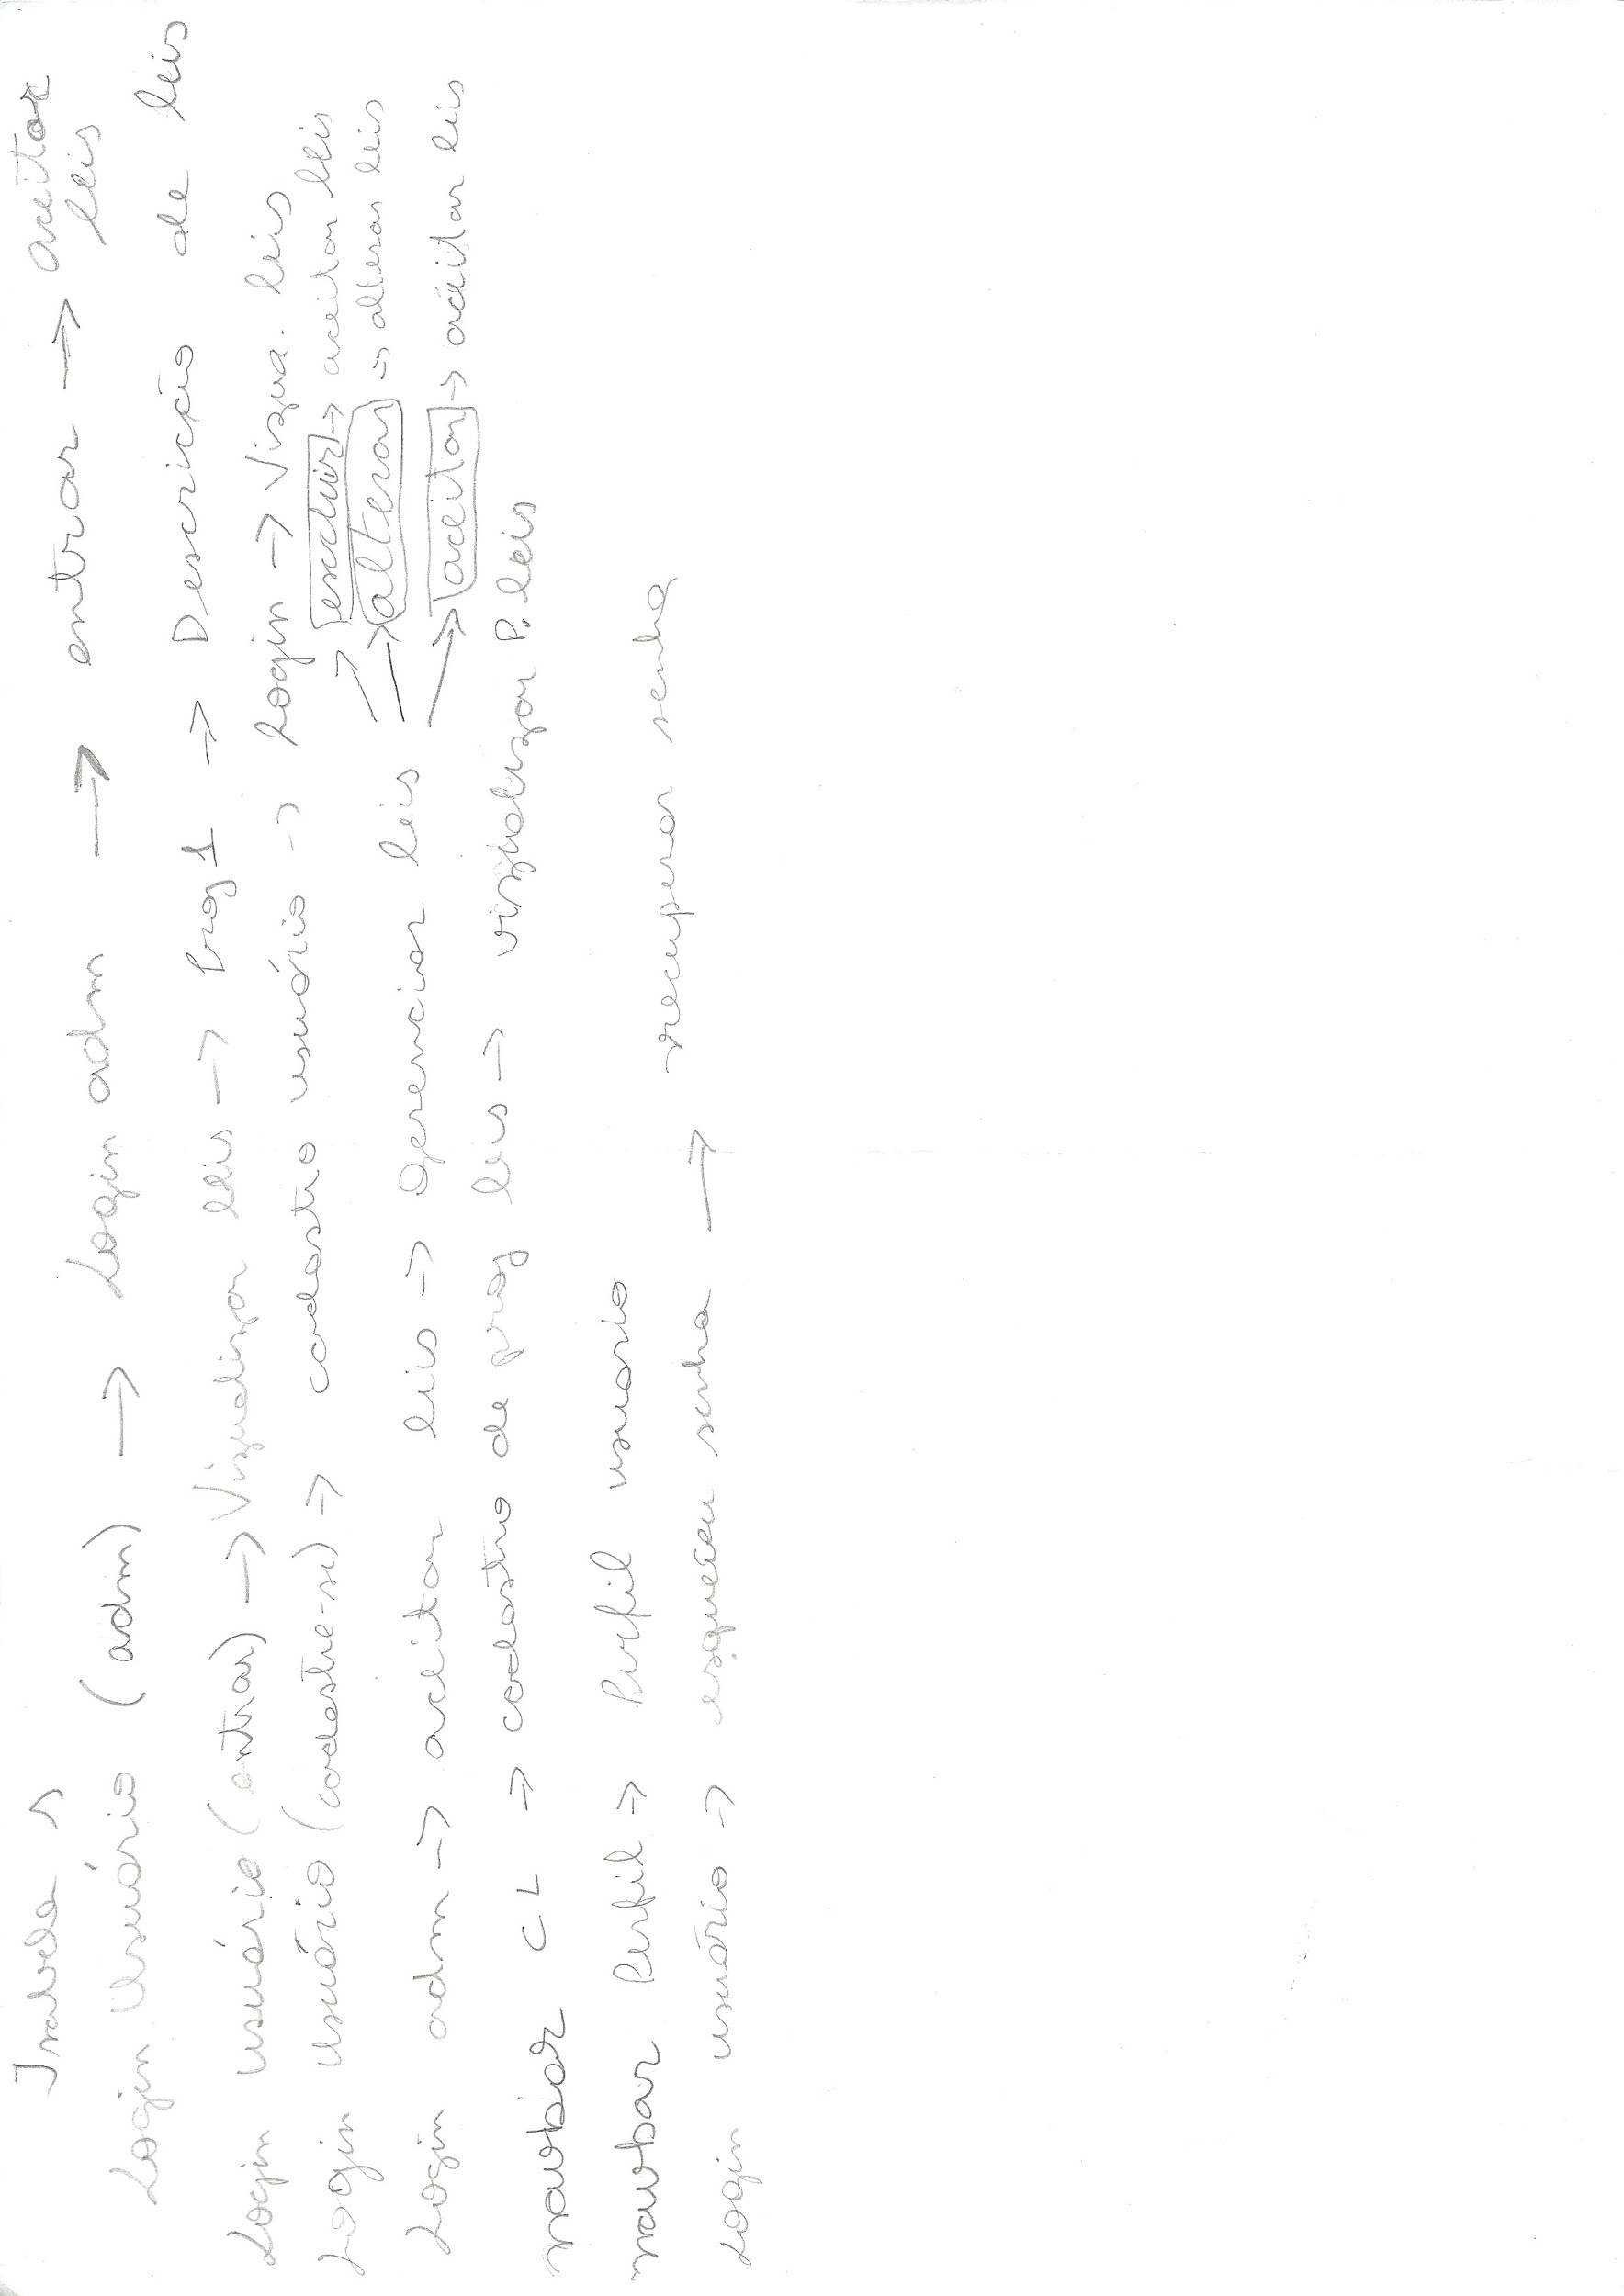 Login Usuário (adm) → Login adm → entrar → aceitar
leis
Login usuário (entrar) → Vizualizar leis → Prog 1 → Descrição de leis
Login Usuário (cadastre-se) → cadastro usuário → Login → Vizua. leis
→ excluir → aceitar leis
Login adm → aceitar leis → Gerenciar leis → alterar → alterar leis
→ aceitar → aceitar leis
navbar CL → cadastro de prog leis → vizualizar P. leis
navbar Perfil → Perfil usuario
Login usuário → esqueceu senha → recuperar senha